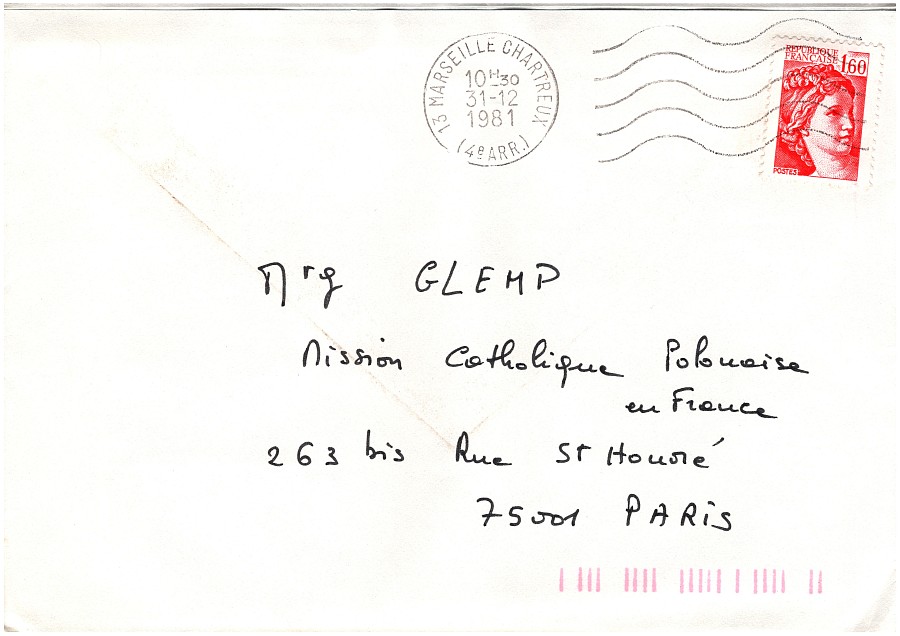 13 MARSEILLE CHARTREUX
10H30
31-12
1981
(4e ARR.)
REPUBLIQUE
FRANÇAISE
1,60
POSTES
Mgr GLEMP
Mission Catholique Polonaise
en France
263 bis Rue St Honoré
75001 PARIS